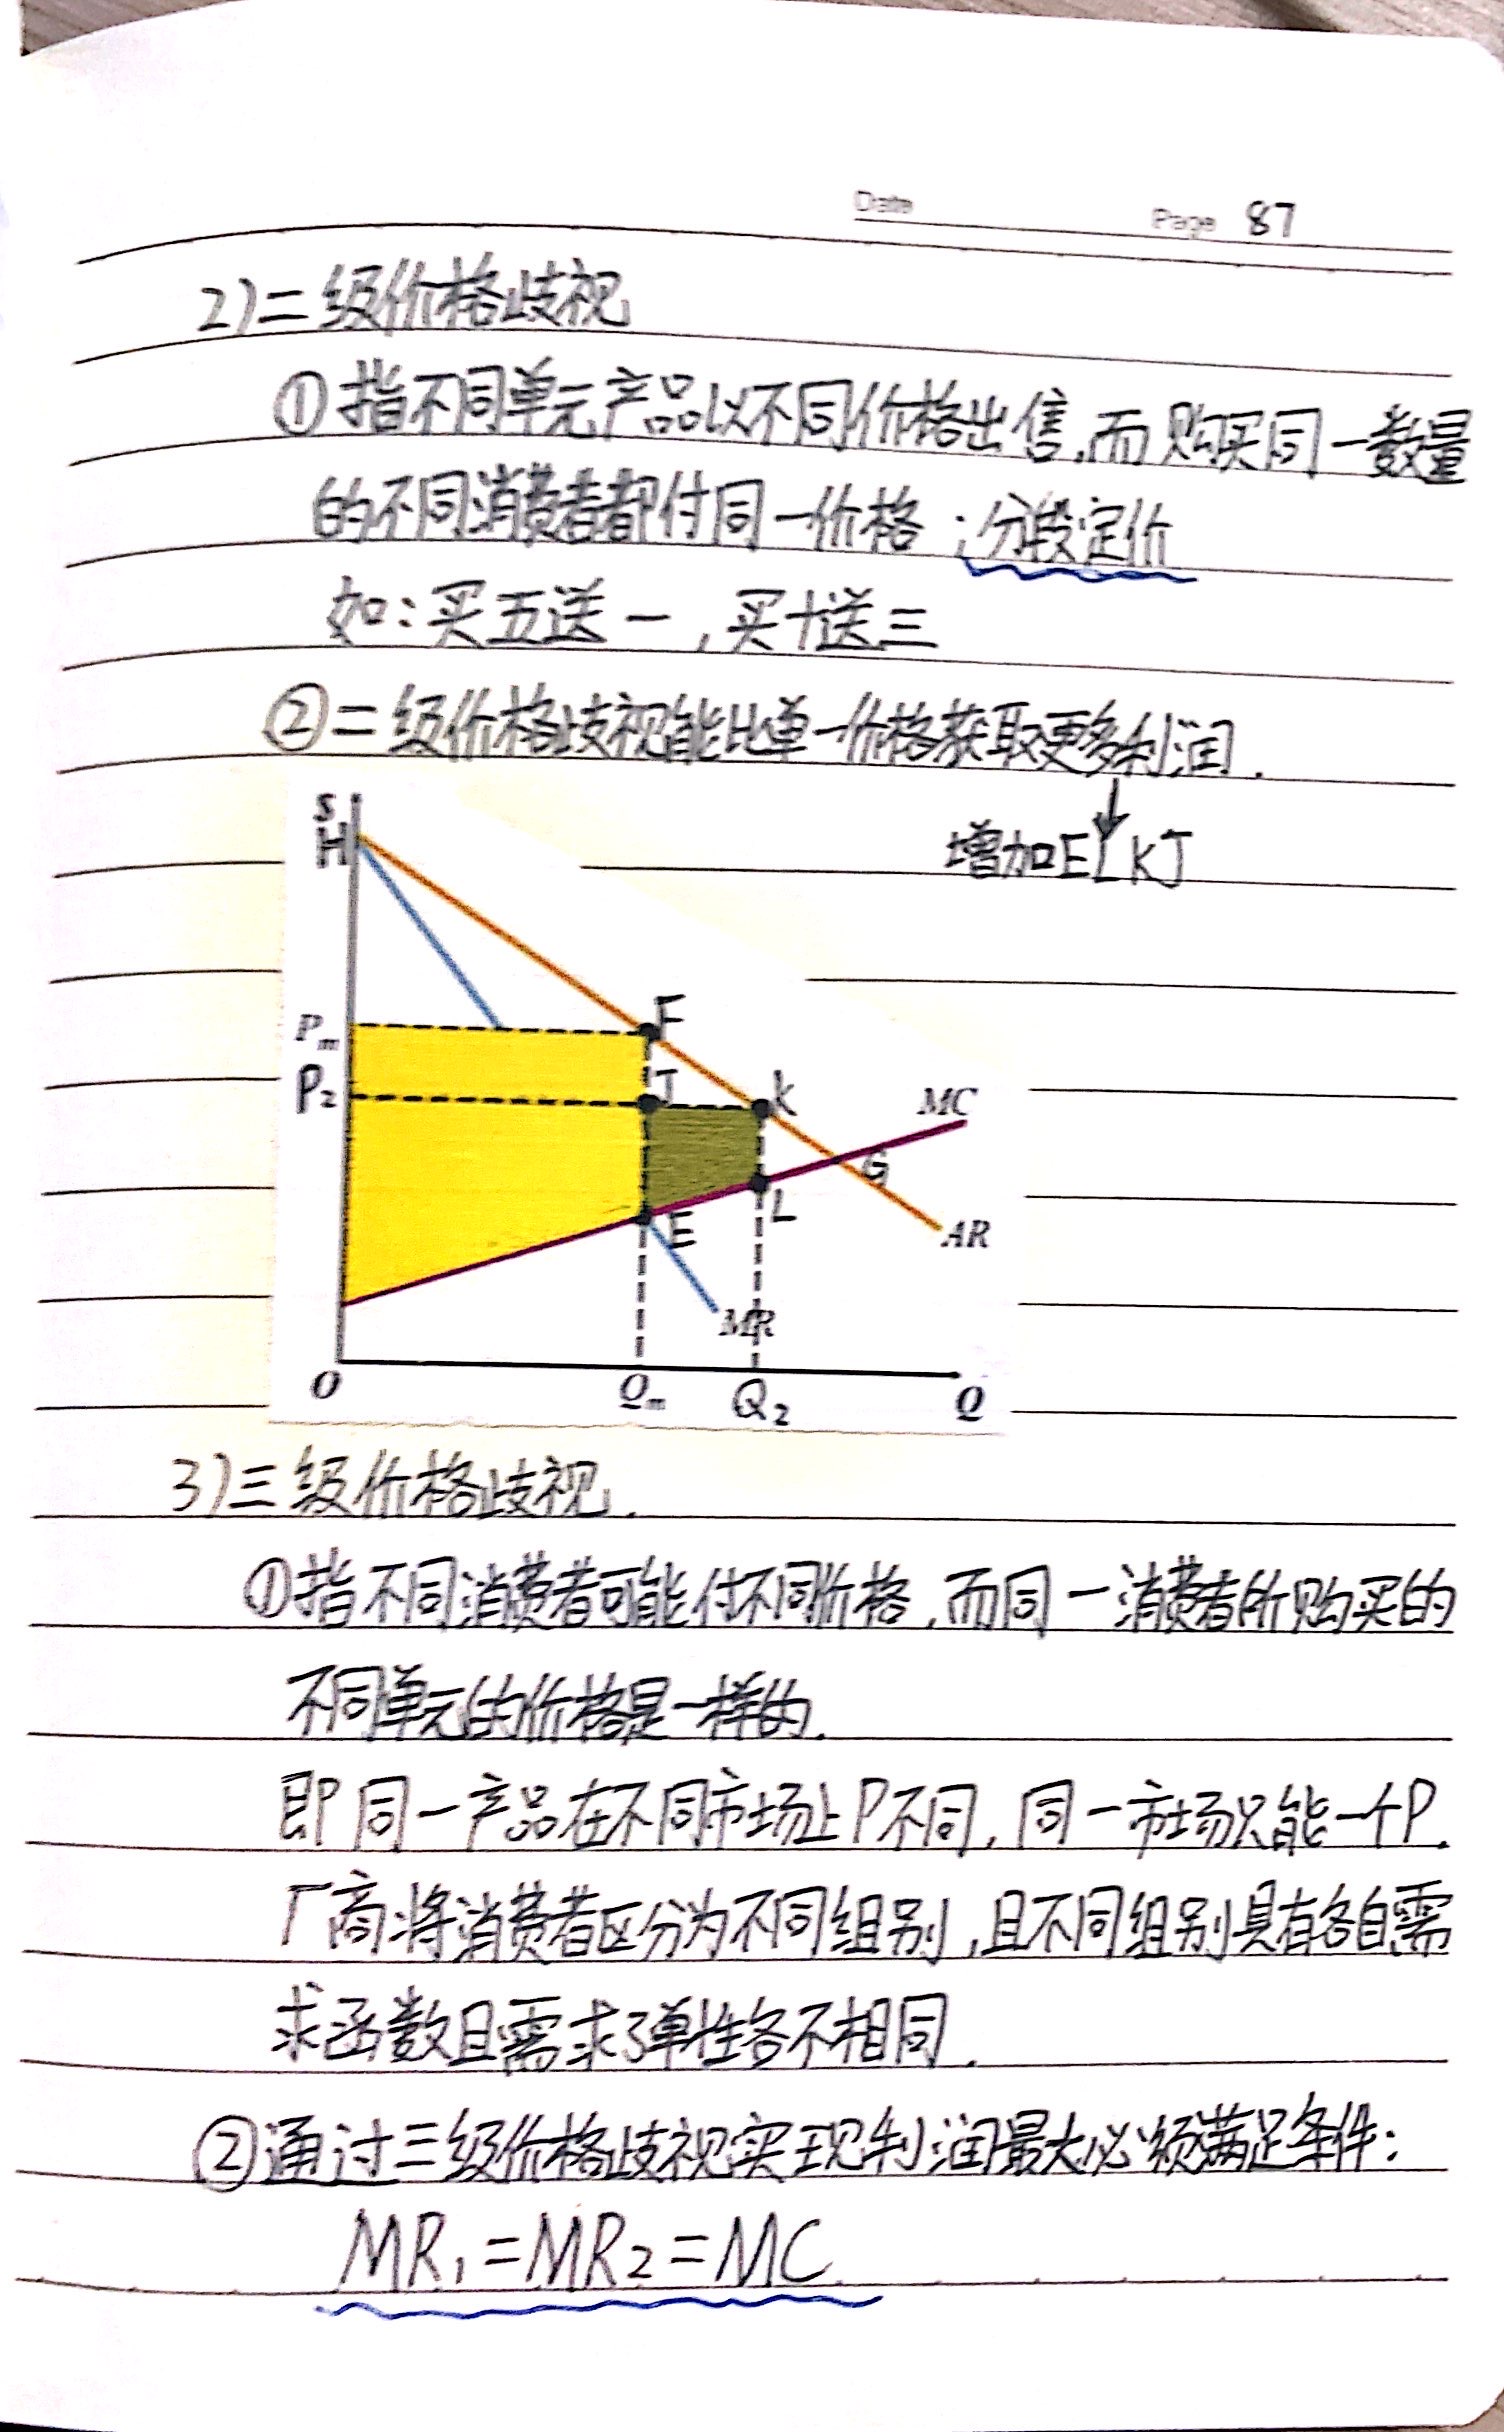 Date Page 87
2)二级价格歧视
①指不同单元产品以不同价格出售,而购买同一数量
的不同消费者都付同一价格;分段定价
如:买五送一,买十送三
②二级价格歧视能比单一价格获取更多利润.
↓
增加ELKJ
$
H
F
Pm
J
P2
K
MC
G
L
E
AR
MR
O
Qm
Q2
Q
3)三级价格歧视.
①指不同消费者可能付不同价格,而同一消费者所购买的
不同单元的价格是一样的.
即同一产品在不同市场上P不同,同一市场只能一个P.
厂商将消费者区分为不同组别,且不同组别具有各自需
求函数且需求弹性各不相同.
②通过三级价格歧视实现利润最大必须满足条件:
MR₁=MR₂=MC